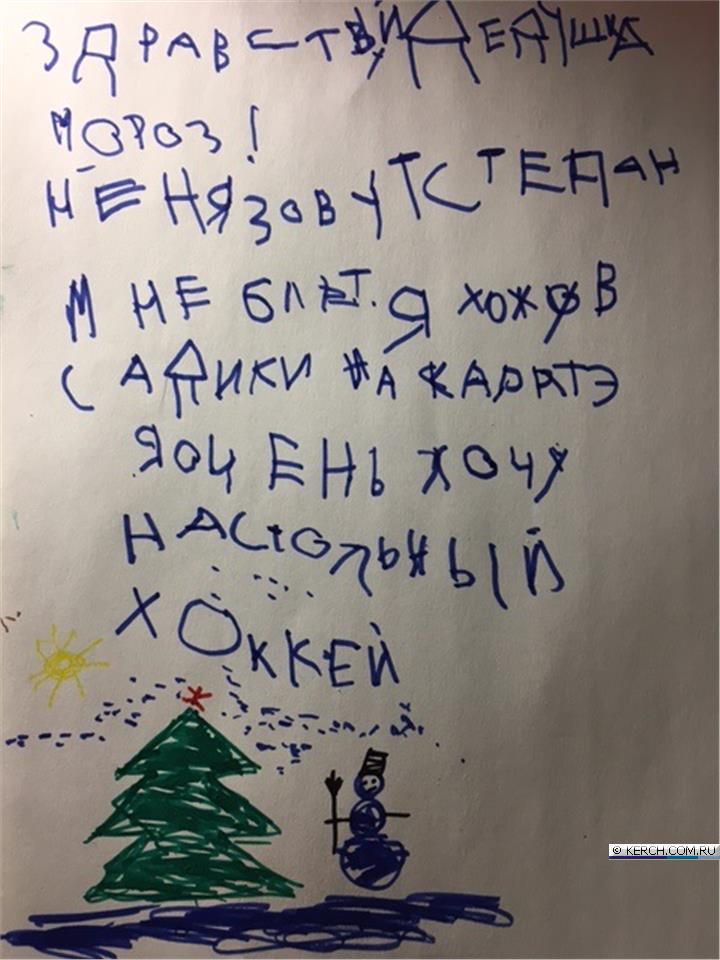 ЗДРАВСТВУЙ ДЕДУШКА
МОРОЗ!
МЕНЯ ЗОВУТ СТЕПАН
МНЕ 6 ЛЕТ. Я ХОЖУ В
САДИК И НА КАРАТЭ
Я ОЧЕНЬ ХОЧУ
НАСТОЛЬНЫЙ
ХОККЕЙ
© KERCH.COM.RU